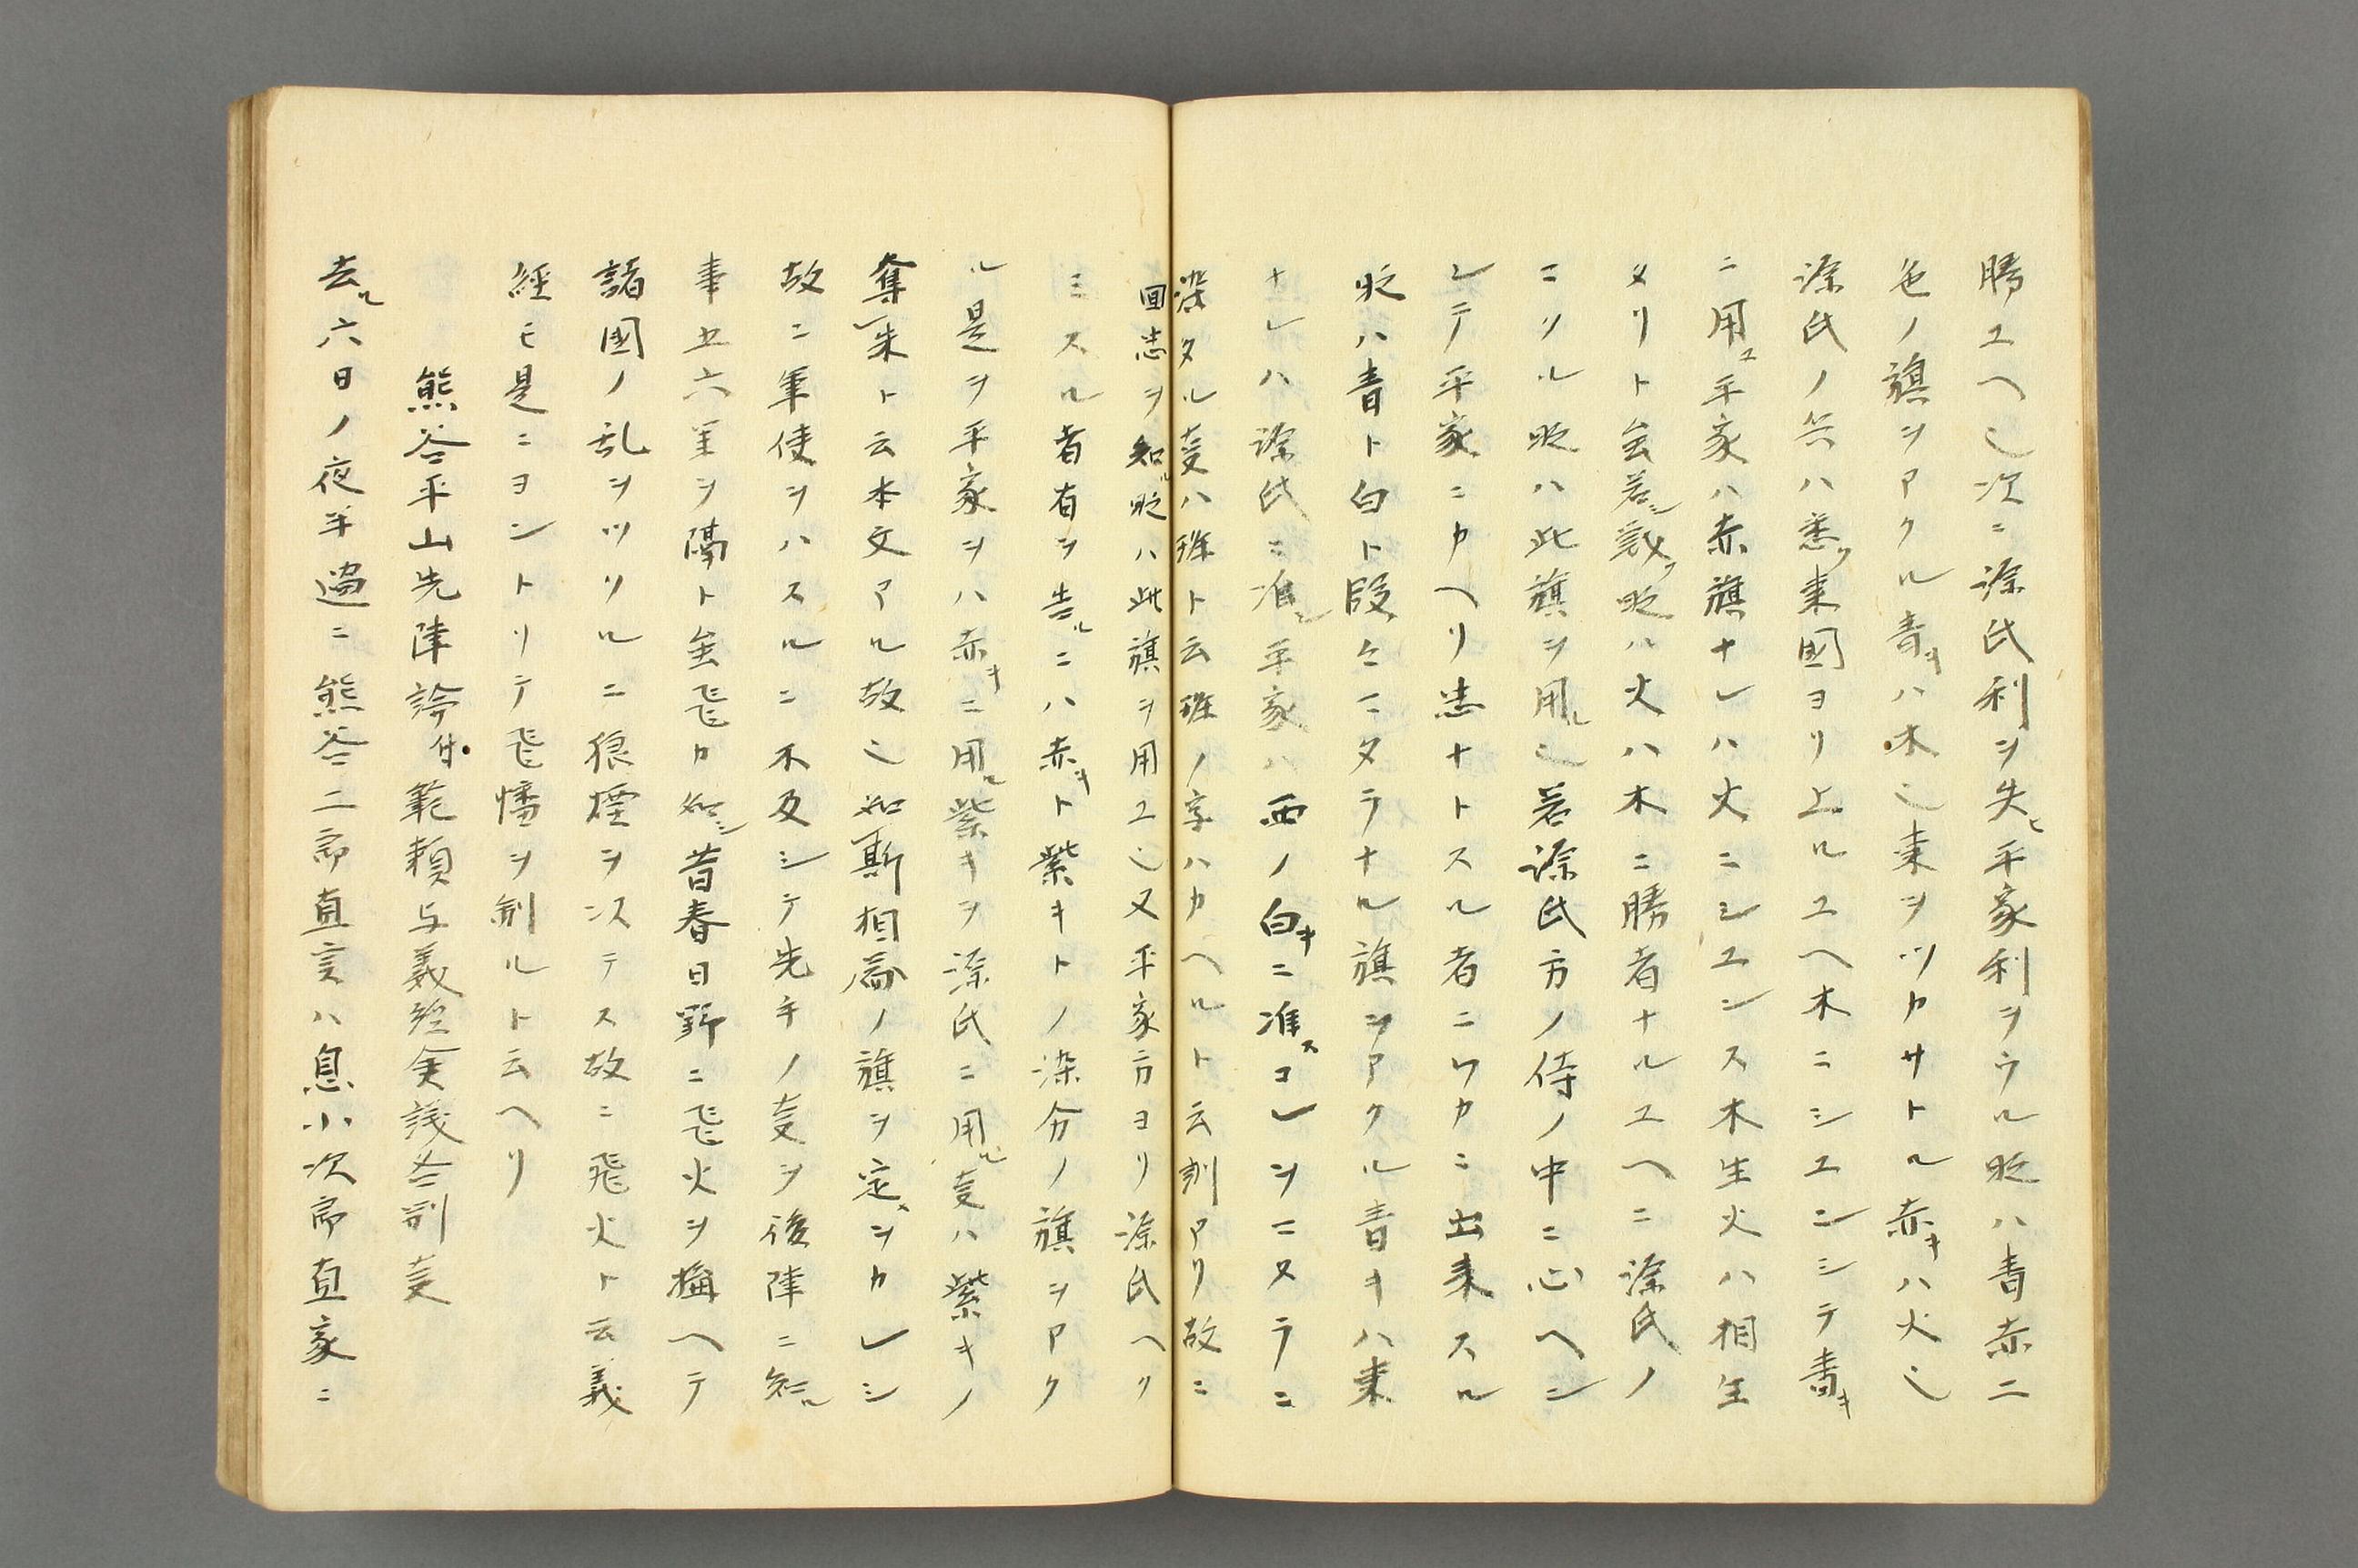 勝ユヘ也次ニ源氏利ヲ失ヒ平家利ヲウル時ハ青赤二
色ノ旗ヲアクル青キハ木也東ヲツカサトル赤キハ火也
源氏ノ兵ハ悉ク東國ヨリ上ルユヘ木ニシヱンシテ青キ
ニ用ユ平家ハ赤旗ナレハ火ニシユンス木生火ハ相生
タリト云若シ敵ク時ハ火ハ木ニ勝者ナルユヘニ源氏ノ
ニソル時ハ此旗ヲ用ル也若源氏方ノ侍ノ中ニ心ヘン
シテ平家ニカヘリ忠ナトスル者ニワカニ出来スル
時ハ青ト白ト段々ニタラナル旗ヲアクル青キハ東
ナレハ源氏ニ准シ平家ハ西ノ白キニ准スコレヲニスラニ
染タル事ハ斑ト云斑ノ字ハカヘルト云訓アリ故ニ
回忠ヲ知ル時ハ此旗ヲ用ユ也又平家方ヨリ源氏ヘク
ミスル者有ヲ告ルニハ赤キト紫キトノ染分ノ旗ヲアク
ル是ヲ平家ヲハ赤キニ用ル紫キヲ源氏ニ用ル事ハ紫キノ
奪レ朱ト云本文アル故也如斯相啚ノ旗ヲ定ヲカレシ
故ニ軍使ヲハスルニ不及シテ先手ノ事ヲ後陣ニ知ル
事五六里ヲ隔ト云飛カ如シ昔春日野ニ飛火ヲ搆ヘテ
諸國ノ乱ヲツソルニ狼煙ヲ次テス故ニ飛火ト云義
經モ是ニヨントリテ飛幡ヲ制ルト云ヘリ
熊谷平山先陣諍付範頼与義經実議各別事
去ル六日ノ夜半過ニ熊谷二郎直実ハ息小次郎直家ニ